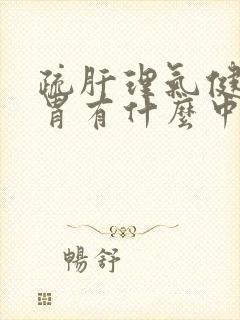 疏肝理氣健
胃有什麼中
暢舒